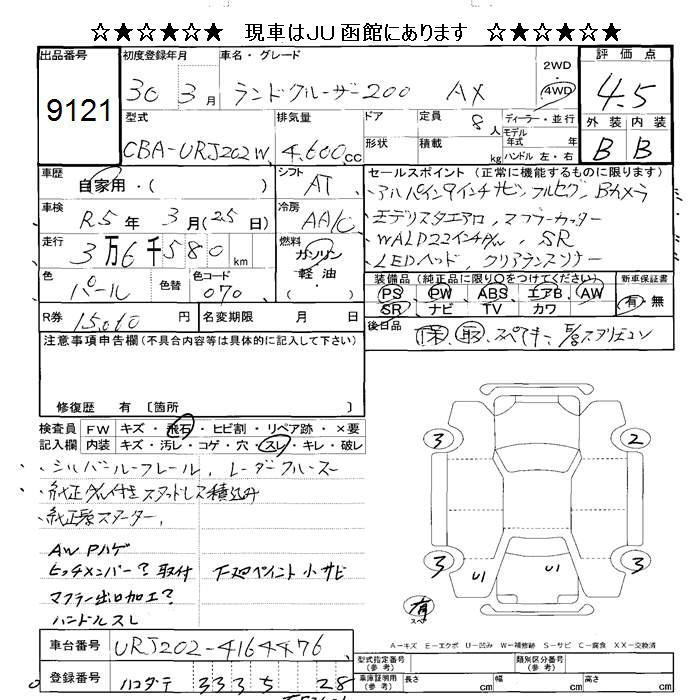 ☆★☆★☆★ 現車はJU函館にあります ☆★☆★☆★
出品番号 初度登録年月 車名・グレード 2WD 4WD 評価点
9121 30 3月 ランドクルーザー200 AX 4.5
型式 排気量 ドア 定員 8人 ディーラー・並行 外装 内装
CBA-URJ202W 4,600cc 形状 積載 kg モデル年式 年 ハンドル 左・右 B B
車歴 自家用・( ) シフト AT セールスポイント (正常に機能するものに限ります)
アルパイン9インチナビ, フルセグ, Bカメラ
車検 R5年 3月(25日) 冷房 AA/C モデリスタエアロ, マフラーカッター
走行 3万6千580km 燃料 ガソリン・軽油・( ) WALD22インチA/W, SR
LEDヘッド, クリアランスソナー
色 パール 色替 色コード 070 装備品 (純正品に限り○をつけてください) 新車保証書
PS PW ABS エアB AW 有・無
SR ナビ TV カワ
R券 15,010円 名変期限 月 日 後日品 保, 取, スペアキー,
注意事項申告欄 (不具合内容等は具体的に記入して下さい)
修復歴 有 〔箇所 〕
検査員記入欄 FW キズ・飛石・ヒビ割・リペア跡・×要
内装 キズ・汚レ・コゲ・穴・スレ・キレ・破レ
、シルバールーフレール, レーダークルーズ
、純正A/W付きスタッドレス積込み
、純正スターター,
AW Pハゲ
ヒッチメンバー?取付 下廻ペイント小サビ
マフラー出口加工?
ハンドルスレ
3 2
3 U1 U1 3
有 スペ
A-キズ E-エクボ U-凹み W-補修跡 S-サビ C-腐食 XX-交換済
車台番号 URJ202-4164476
型式指定番号(参考) 類別区分番号(参考)
登録番号 ハコダテ 333 ち 28
車庫証明用(参考) 長さ cm 幅 cm 高さ cm